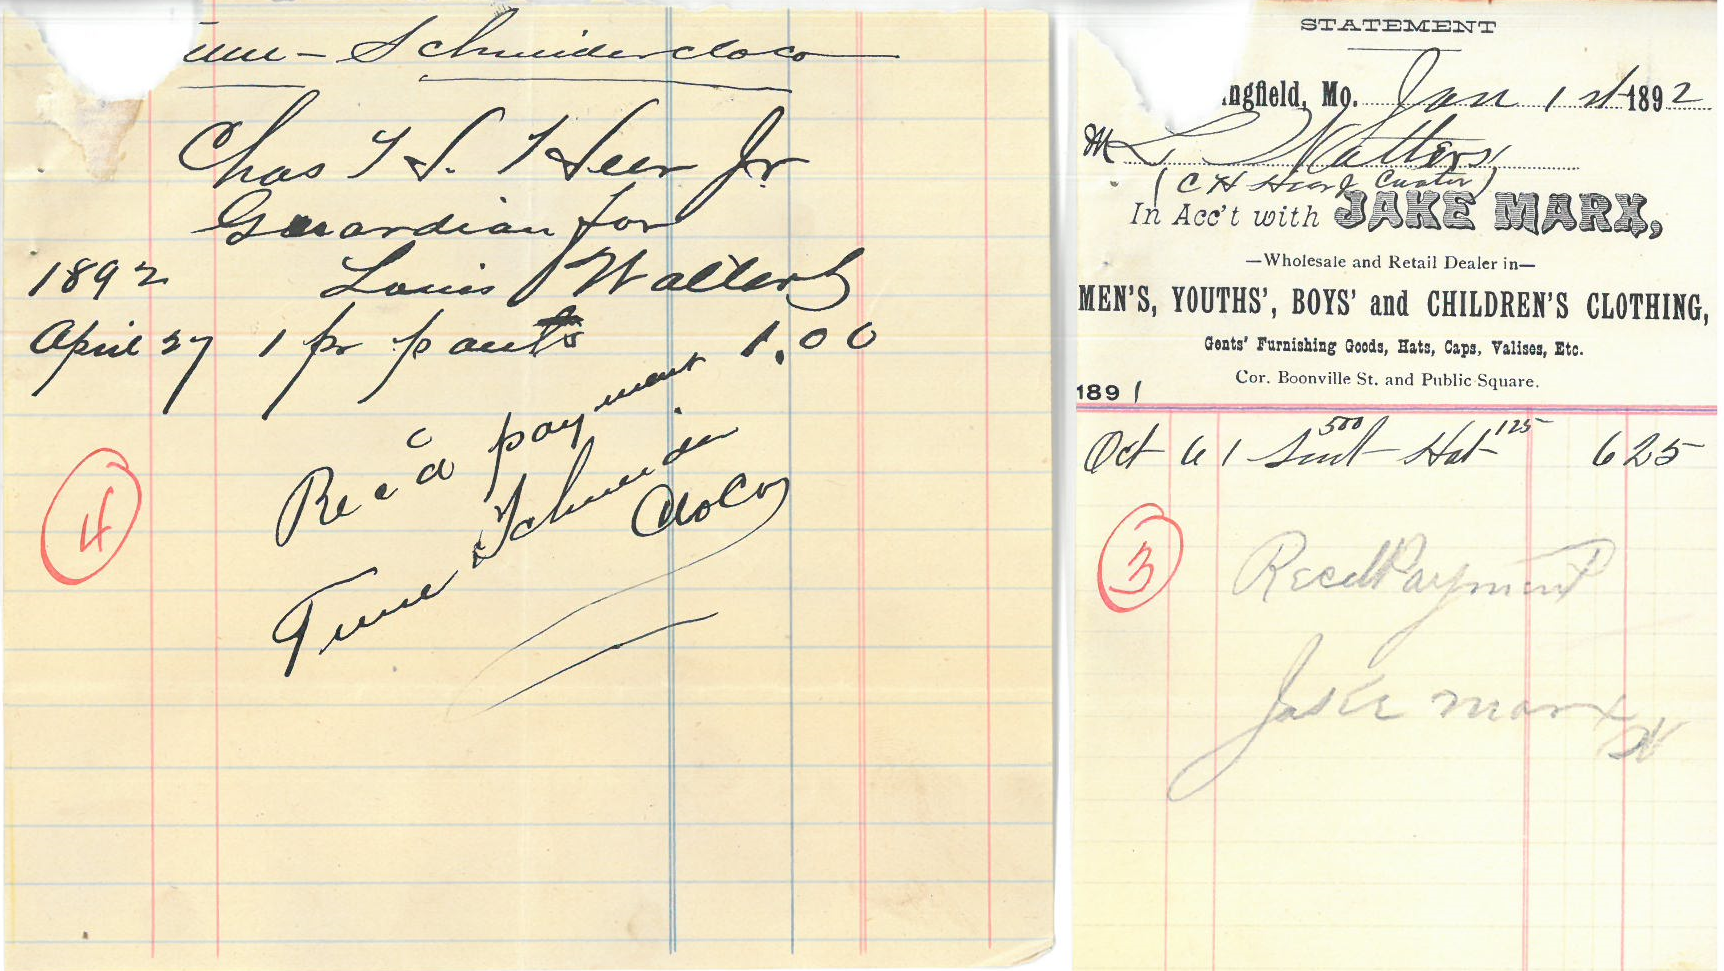 - Schneider Clo Co
Chas H. Heer Jr.
Guardian for
1892 Louis Walters
April 27 1 pr pants 1.00
Rec'd payment
Schneider
Clo Co
4
STATEMENT
ingfield, Mo. Jan 1st 1892
M L Walters
(C H Heer Jr Curator)
In Acc't with JAKE MARX,
—Wholesale and Retail Dealer in—
MEN'S, YOUTHS', BOYS' and CHILDREN'S CLOTHING,
Gents' Furnishing Goods, Hats, Caps, Valises, Etc.
Cor. Boonville St. and Public Square.
1891
Oct 6 1 Suit 500 Hat 125 625
3
Recd Payment
Jake Marx